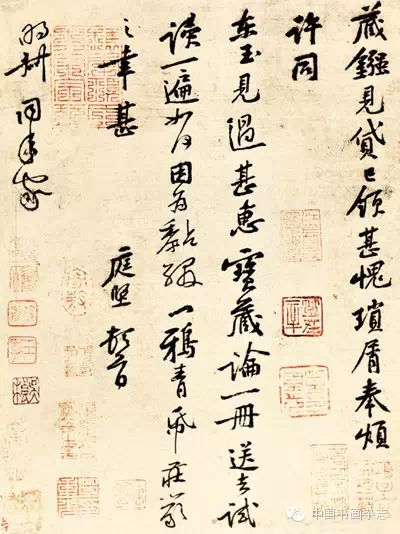 藏鏹見貸已領甚愧瑣屑奉煩
許同
東玉見過甚惠寶藏論一冊送去試
讀一遍如何因为黏綴一鴉青紙莊嚴
之幸甚 庭堅頓首
明叔同年家
中国书画杂志